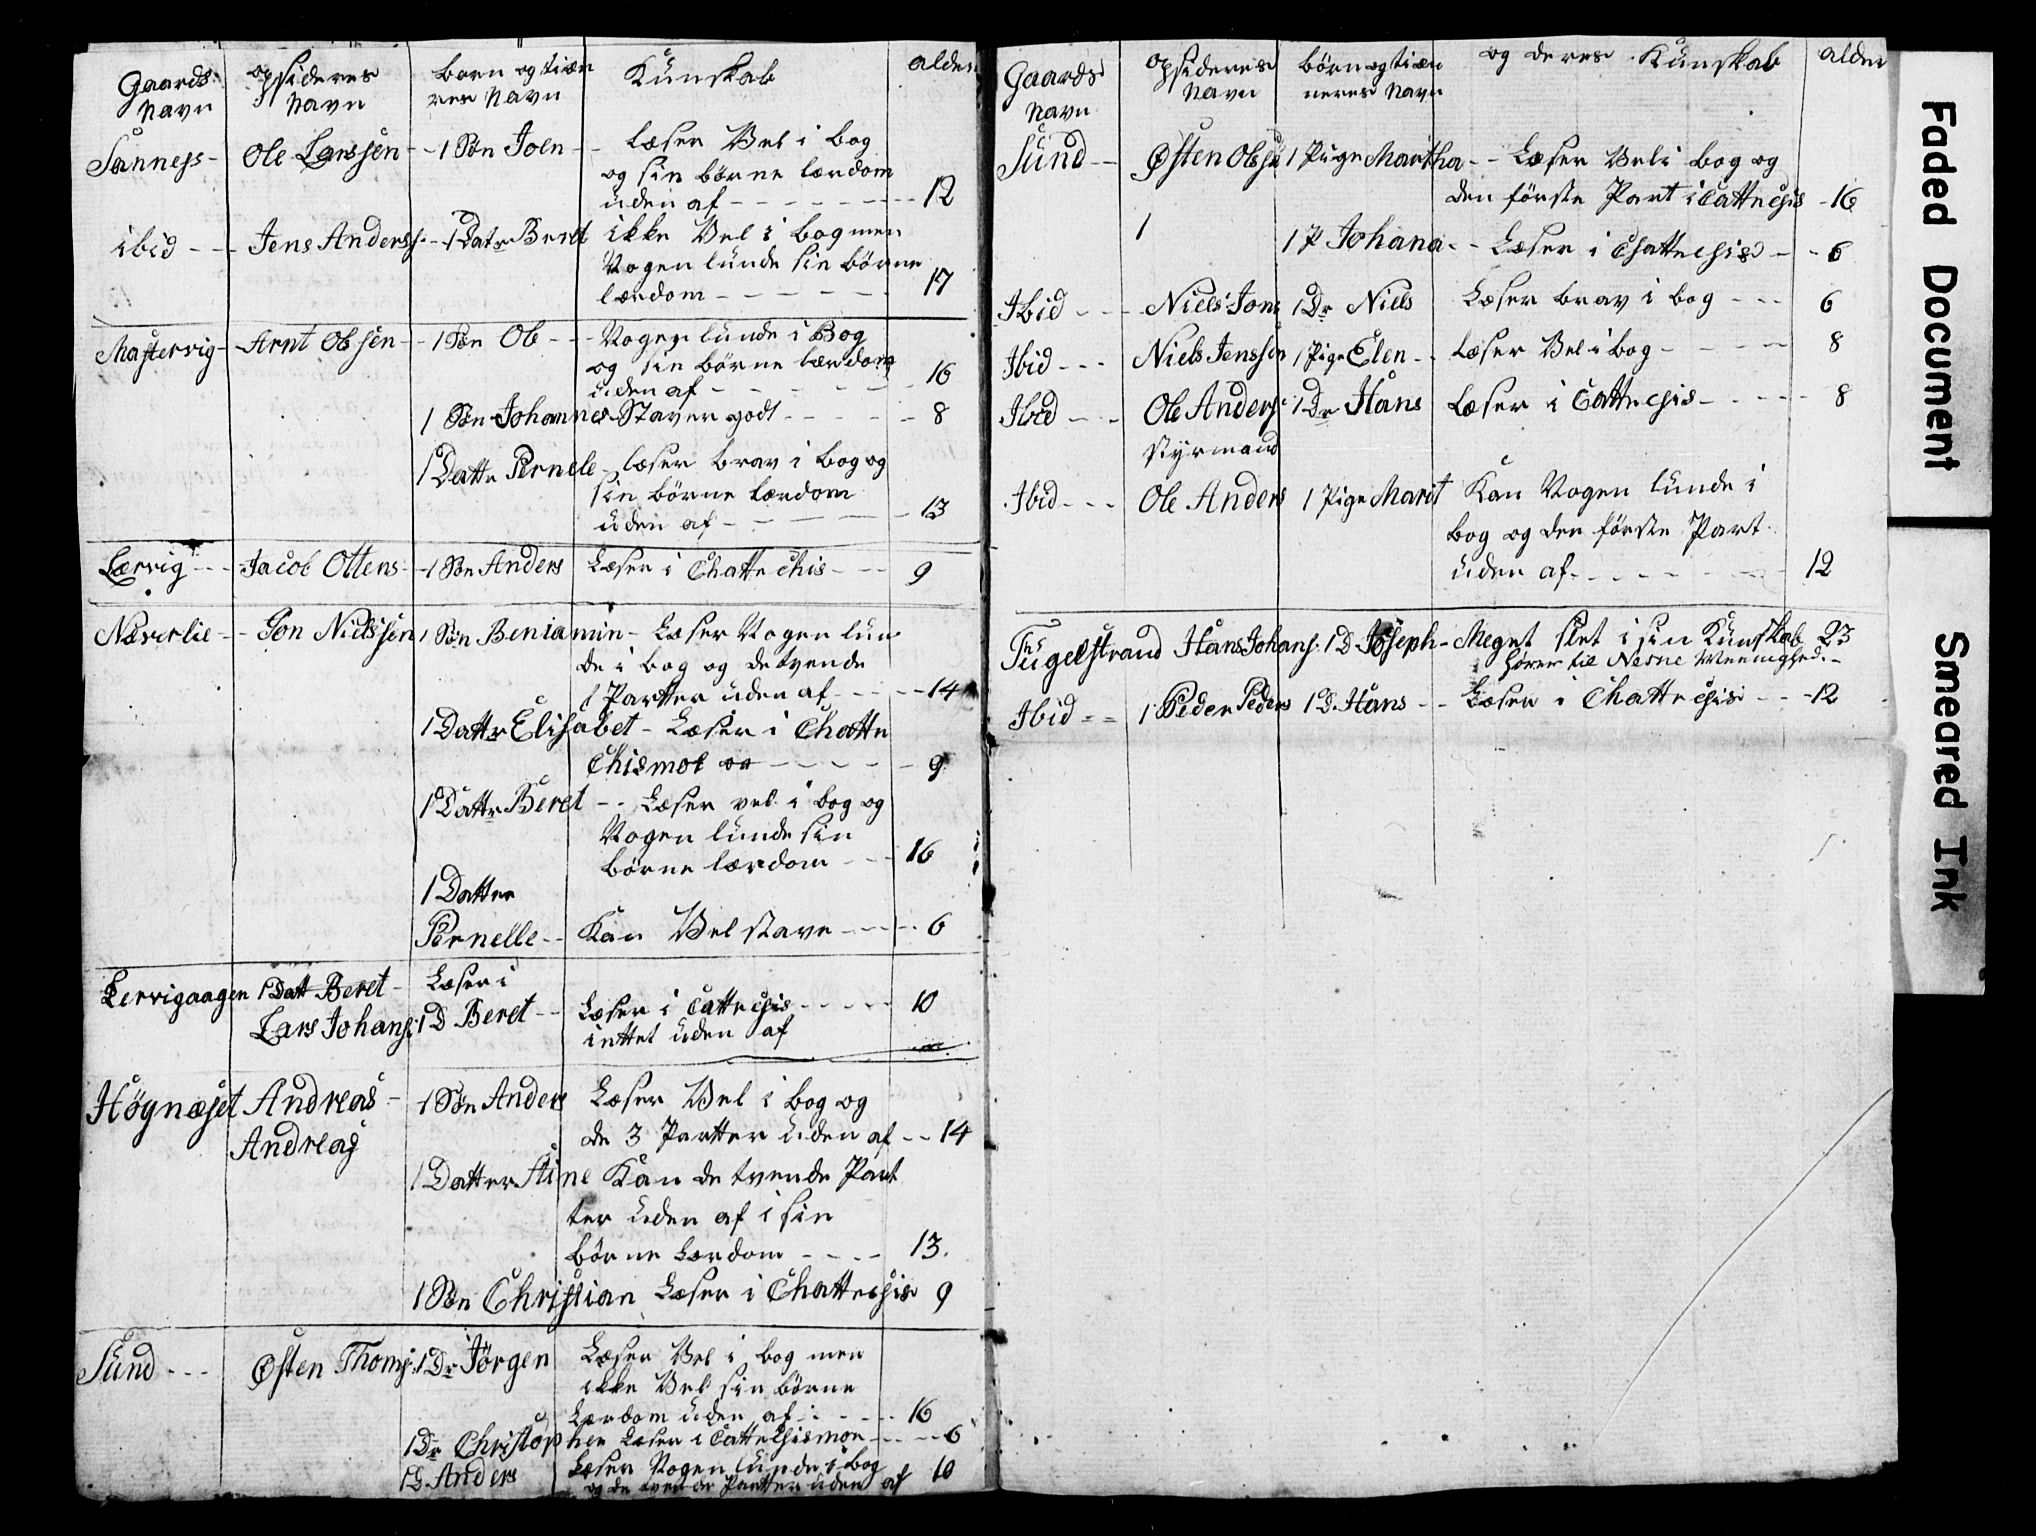 Gaards opsideres born og tiæn Kunskab alder
Navn Navn res Navn
Sanness - Ole Larssen - - 1 Søn Joen - - læser Vel i bog
og sin børne lærdom
uden af - - - - - - - 12
ibid - - Jens Anderss: - 1 Datr Beret ikke Vel i bog men
Nogen lunde sin børne
lærdom - - - - - - 17
Mastervig - Arnt Olsen - - 1 Søn Ole - - Nogen lunde i Bog
og sin børne lærdom
uden af - - - - - - 16
1 Søn Johannes - Staver godt - - - - - 8
1 Dattr Pernele - læser brav i bog og
sin børne lærdom
uden af - - - - - 13
Lærvig - - - Jacob Ottens - - 1 Søn Anders Læser i Chattechis - - - 9
Næverlie - - Jon Nielssen 1 Søn Beniamin - Læser Nogen lun
de i bog og de tvende
Partter uden af - - - - 14
1 Dattr Elisabet - Læser i Chatte
Chismol - - - - - 9
1 Dattr Beret - - Læser vel i bog og
Nogen lunde sin
børne lærdom - - - 16
1 Datter
Pernelle - - Kan Vel stave - - - - 6
Lervigaagen 1 Datt Beret - Læser i
Lars Johans: 1 D Beret - - Læser i Cattechis - - - - - 10
inttet uden af
Høgnæset Andreas - 1 Søn Anders Læser Vel i bog og
Andreas de 3 Partter uden af - - 14
1 Datter Stine Kan de tvende Part
ter uden af i sin
børne Lærdom - - - - 13.
1 Søn Christian Læser i Chattechis 9
Sund - - - Østen Thoms: 1 Dr Jørgen Læser Vel i bog men
ikke Vel sin børne
Lærdom uden af - - - - - 16
1 Dr Christopher Læser i Cattechismon - - - - 6
1 D. Anders Læser Nogen lunde i bog
og de tvende Partter uden af 10
Gaards opsideres børn og tiæn og deres Kunskab alder
Navn Navn neres Navn
Sund - - Østen Olse 1 Pige Martha - - Læser Vel i bog og
den første Part i Cattechis - 16
1 1 P Johana - - Læser i Chattechis - - 6
Ibid - - - Niels Jons 1 Dr Niels Læser brav i bog - - - 6
Ibid - - - Niels Jenssen 1 Pige Elen - - Læser Vel i bog - - - - 8
Ibid - - Ole Anders: 1 Dr Hans Læser i Cattechis - - - - - 8
styrmand
Ibid - - - Ole Anders 1 Pige Marit Kan Nogen lunde i
bog og den første Part
uden af - - - - - - 12
Hans Johans: 1 D Joseph - Meget slet i sin Kunskab 23
hører til Nesne Meenighed. -
Ibid - - 1 Peder Peders 1 D. Hans - - Læser i Chattechis - - - 12
Faded Document
Smeared Ink